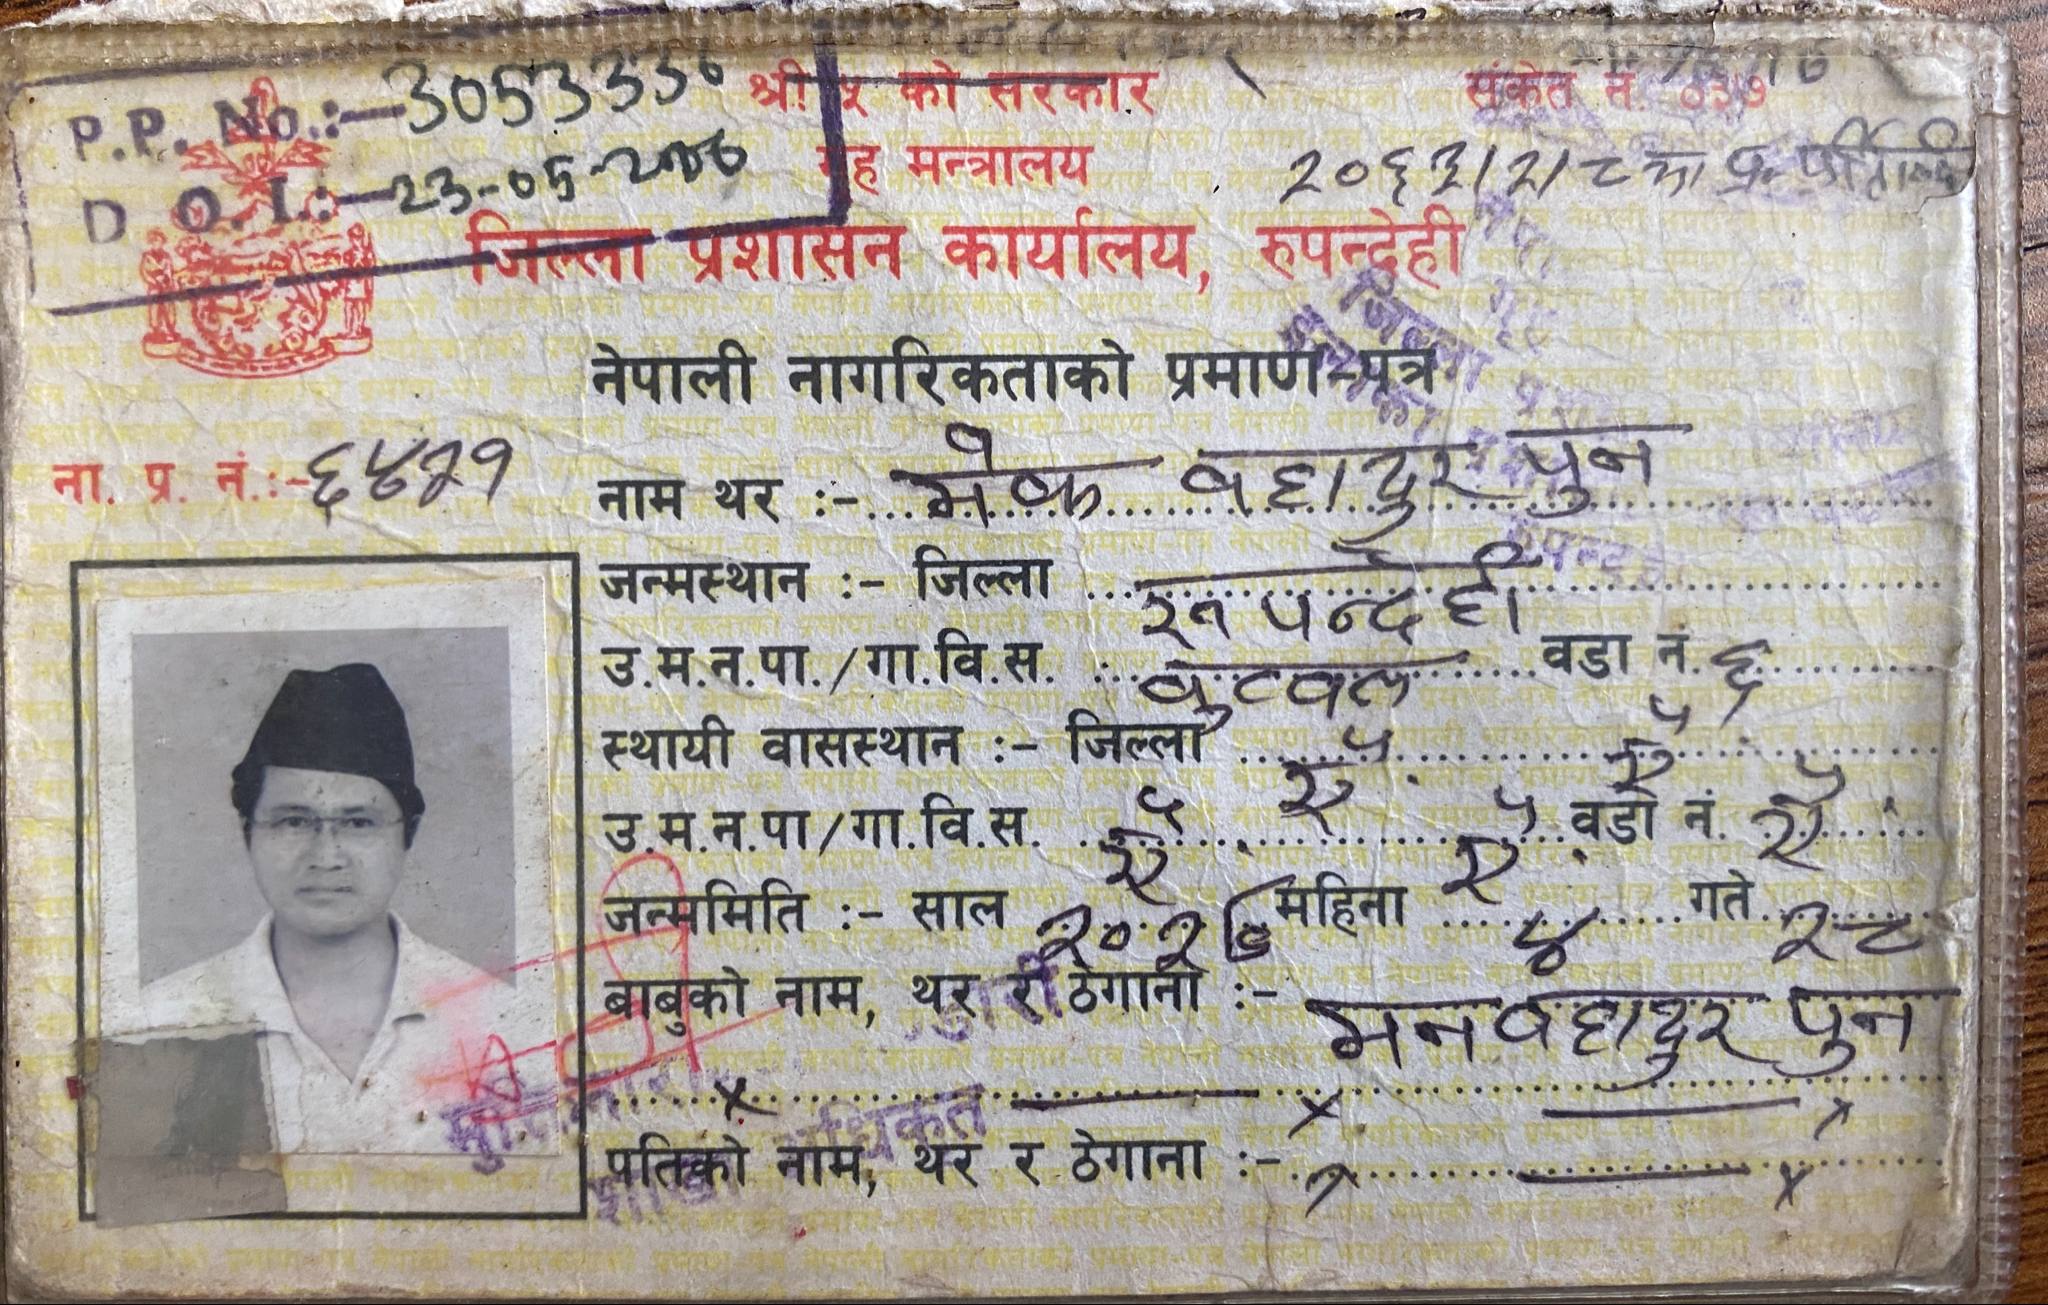 P.P. No.:- 3053336
D O.I.:- 23-05-2006
श्री ५ को सरकार
संकेत नं. ०३७
गृह मन्त्रालय
२०६३/२/८ का प्र. प्रतिलिपि
जिल्ला प्रशासन कार्यालय, रुपन्देही
नेपाली नागरिकताको प्रमाण-पत्र
ना. प्र. नं.:- ६४२१
नाम थर :- मेक बहादुर पुन
जन्मस्थान :- जिल्ला रुपन्देही
उ.म.न.पा./गा.वि.स. बुटवल वडा नं. ६
स्थायी वासस्थान :- जिल्ला ऐ. ऐ.
उ.म.न.पा/गा.वि.स. ऐ. ऐ. वडा नं. ऐ.
जन्ममिति :- साल २०२७ महिना ४ गते २८
बाबुको नाम, थर र ठेगाना :- मनबहादुर पुन
x — x — x
पतिको नाम, थर र ठेगाना :- x — x